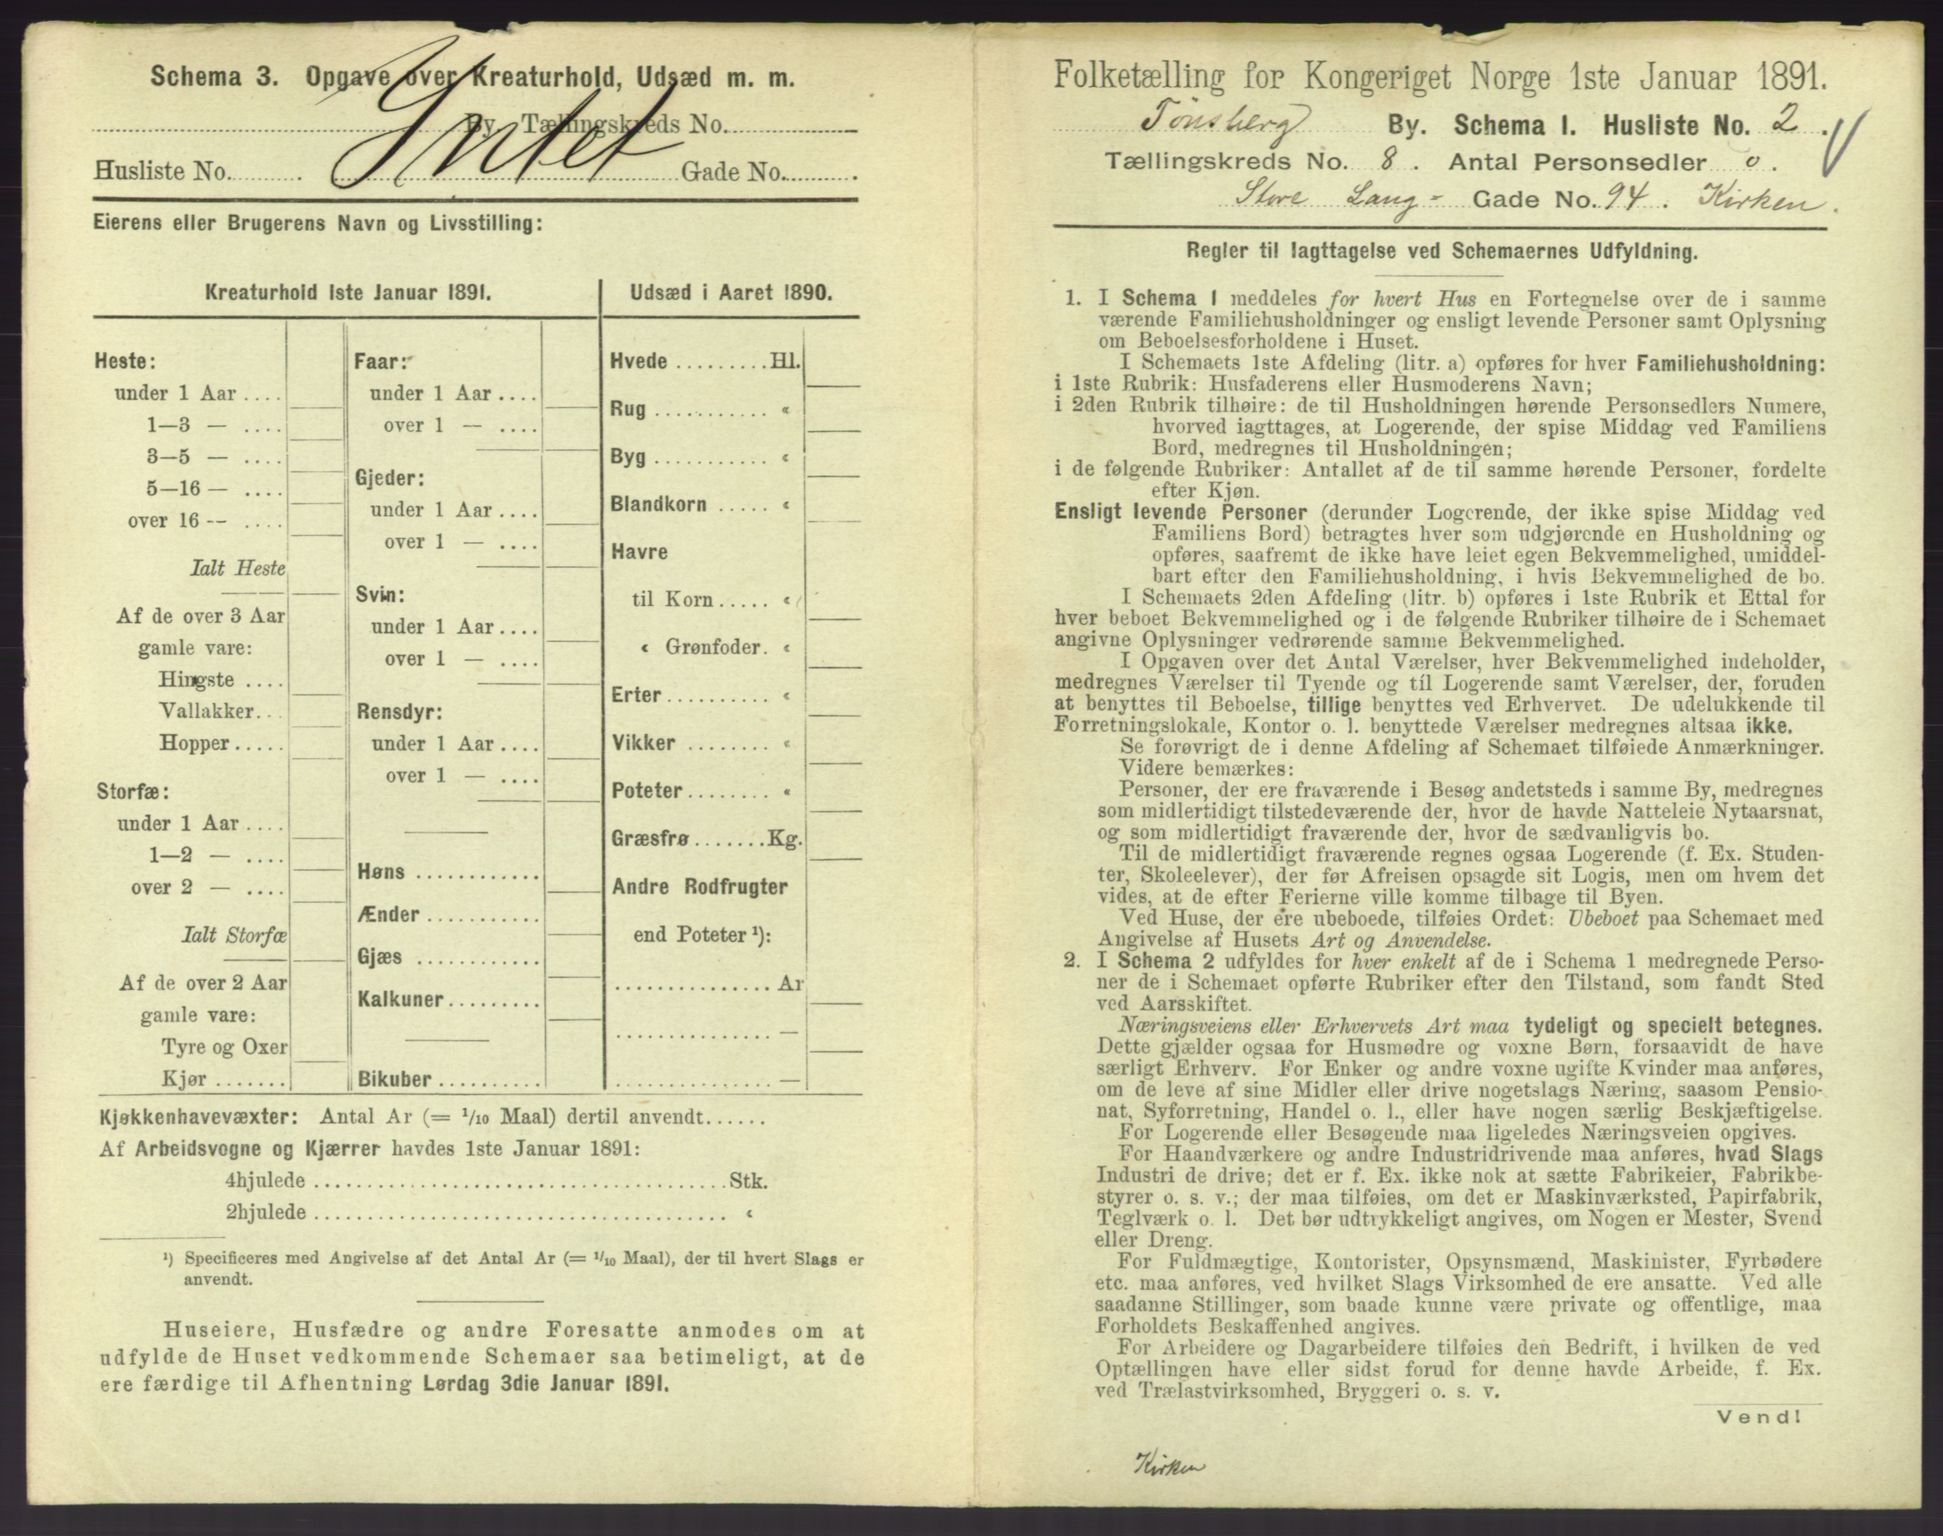 Schema 3. Opgave over Kreaturhold, Udsæd m. m.
Intet
By Tællingskreds No.
Husliste No. Gade No.
Eierens eller Brugerens Navn og Livsstilling:
Kreaturhold 1ste Januar 1891.
Heste:
under 1 Aar ....
1—3 — ....
3—5 — ....
5—16 — ....
over 16 — ....
Ialt Heste
Af de over 3 Aar
gamle vare:
Hingste ....
Vallakker...
Hopper .....
Storfæ:
under 1 Aar ....
1—2 — ....
over 2 — ....
Ialt Storfæ
Af de over 2 Aar
gamle vare:
Tyre og Oxer
Kjør .......
Faar:
under 1 Aar ....
over 1 — ....
Gjeder:
under 1 Aar ....
over 1 — ....
Svin:
under 1 Aar ....
over 1 — ....
Rensdyr:
under 1 Aar ....
over 1 — ....
Høns ............
Ænder ...........
Gjæs ............
Kalkuner.........
Bikuber ..........
Udsæd i Aaret 1890.
Hvede .........Hl.
Rug ........... «
Byg ........... «
Blandkorn ..... «
Havre
til Korn ..... «
« Grønfoder. «
Erter ......... «
Vikker ........ «
Poteter ........ «
Græsfrø .......Kg.
Andre Rodfrugter
end Poteter ¹):
............... Ar
............... —
............... —
Kjøkkenhavevæxter: Antal Ar (= 1/10 Maal) dertil anvendt......
Af Arbeidsvogne og Kjærrer havdes 1ste Januar 1891:
4hjulede ....................................... Stk.
2hjulede ....................................... «
¹) Specificeres med Angivelse af det Antal Ar (= 1/10 Maal), der til hvert Slags er
anvendt.
Huseiere, Husfædre og andre Foresatte anmodes om at
udfylde de Huset vedkommende Schemaer saa betimeligt, at de
ere færdige til Afhentning Lørdag 3die Januar 1891.
Folketælling for Kongeriget Norge 1ste Januar 1891.
Tønsberg By. Schema 1. Husliste No. 2.
Tællingskreds No. 8. Antal Personsedler 0.
Store Lang- Gade No. 94. Kirken.
Regler til Iagttagelse ved Schemaernes Udfyldning.
1. I Schema 1 meddeles for hvert Hus en Fortegnelse over de i samme
værende Familiehusholdninger og ensligt levende Personer samt Oplysning
om Beboelsesforholdene i Huset.
I Schemaets 1ste Afdeling (litr. a) opføres for hver Familiehusholdning:
i 1ste Rubrik: Husfaderens eller Husmoderens Navn;
i 2den Rubrik tilhøire: de til Husholdningen hørende Personsedlers Numere,
hvorved iagttages, at Logerende, der spise Middag ved Familiens
Bord, medregnes til Husholdningen;
i de følgende Rubriker: Antallet af de til samme hørende Personer, fordelte
efter Kjøn.
Ensligt levende Personer (derunder Logerende, der ikke spise Middag ved
Familiens Bord) betragtes hver som udgjørende en Husholdning og
opføres, saafremt de ikke have leiet egen Bekvemmelighed, umiddel-
bart efter den Familiehusholdning, i hvis Bekvemmelighed de bo.
I Schemaets 2den Afdeling (litr. b) opføres i 1ste Rubrik et Ettal for
hver beboet Bekvemmelighed og i de følgende Rubriker tilhøire de i Schemaet
angivne Oplysninger vedrørende samme Bekvemmelighed.
I Opgaven over det Antal Værelser, hver Bekvemmelighed indeholder,
medregnes Værelser til Tyende og til Logerende samt Værelser, der, foruden
at benyttes til Beboelse, tillige benyttes ved Erhvervet. De udelukkende til
Forretningslokale, Kontor o. l. benyttede Værelser medregnes altsaa ikke.
Se forøvrigt de i denne Afdeling af Schemaet tilføiede Anmærkninger.
Videre bemærkes:
Personer, der ere fraværende i Besøg andetsteds i samme By, medregnes
som midlertidigt tilstedeværende der, hvor de havde Natteleie Nytaarsnat,
og som midlertidigt fraværende der, hvor de sædvanligvis bo.
Til de midlertidigt fraværende regnes ogsaa Logerende (f. Ex. Studen-
ter, Skoleelever), der før Afreisen opsagde sit Logis, men om hvem det
vides, at de efter Ferierne ville komme tilbage til Byen.
Ved Huse, der ere ubeboede, tilføies Ordet: Ubeboet paa Schemaet med
Angivelse af Husets Art og Anvendelse.
2. I Schema 2 udfyldes for hver enkelt af de i Schema 1 medregnede Perso-
ner de i Schemaet opførte Rubriker efter den Tilstand, som fandt Sted
ved Aarsskiftet.
Næringsveiens eller Erhvervets Art maa tydeligt og specielt betegnes.
Dette gjælder ogsaa for Husmødre og voxne Børn, forsaavidt de have
særligt Erhverv. For Enker og andre voxne ugifte Kvinder maa anføres,
om de leve af sine Midler eller drive nogetslags Næring, saasom Pensio-
nat, Syforretning, Handel o. l., eller have nogen særlig Beskjæftigelse.
For Logerende eller Besøgende maa ligeledes Næringsveien opgives.
For Haandværkere og andre Industridrivende maa anføres, hvad Slags
Industri de drive; det er f. Ex. ikke nok at sætte Fabrikeier, Fabrikbe-
styrer o. s. v.; der maa tilføies, om det er Maskinværksted, Papirfabrik,
Teglværk o. l. Det bør udtrykkeligt angives, om Nogen er Mester, Svend
eller Dreng.
For Fuldmægtige, Kontorister, Opsynsmænd, Maskinister, Fyrbødere
etc. maa anføres, ved hvilket Slags Virksomhed de ere ansatte. Ved alle
saadanne Stillinger, som baade kunne være private og offentlige, maa
Forholdets Beskaffenhed angives.
For Arbeidere og Dagarbeidere tilføies den Bedrift, i hvilken de ved
Optællingen have eller sidst forud for denne havde Arbeide, f. Ex.
ved Trælastvirksomhed, Bryggeri o. s. v.
Vend!
Kirken